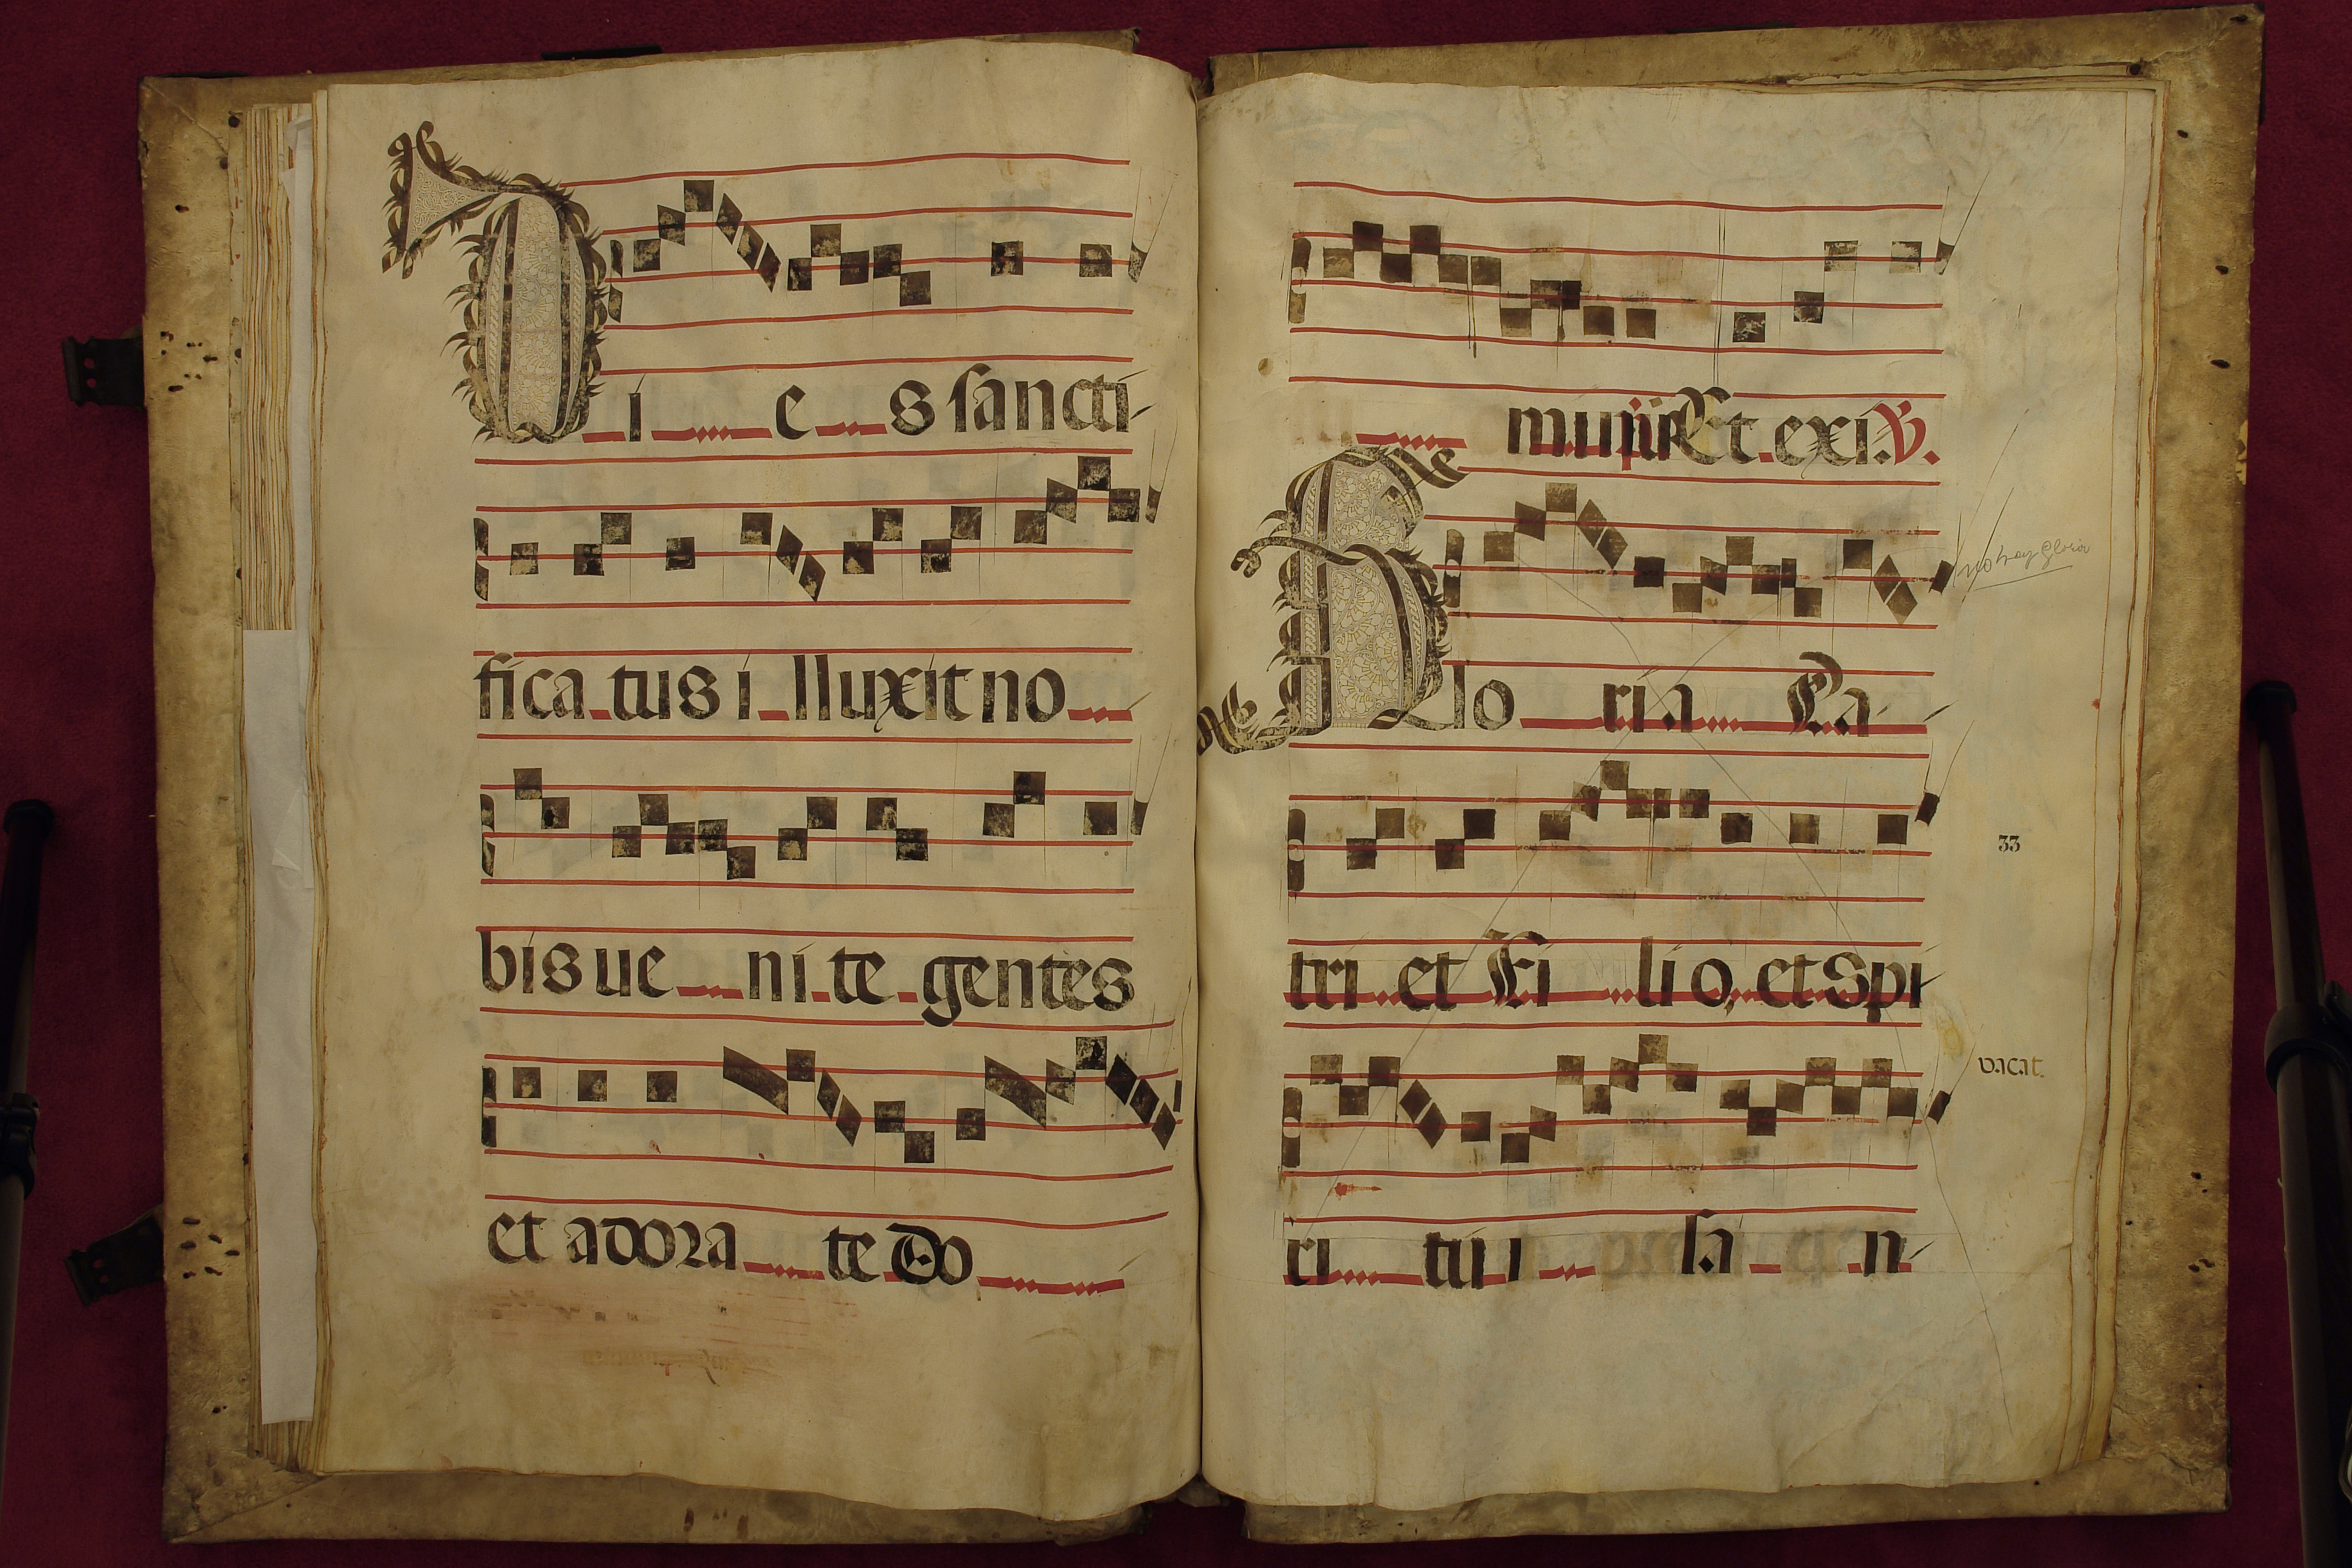 Di e s sancti
fica tus i lluxit no
bis ue ni te gentes
et adora te Do
mi Et exi. V.
Glo ri a Pa
no hay gloria
tri et Fi li o, et Spi
33
ri tu i sa n
vacat.